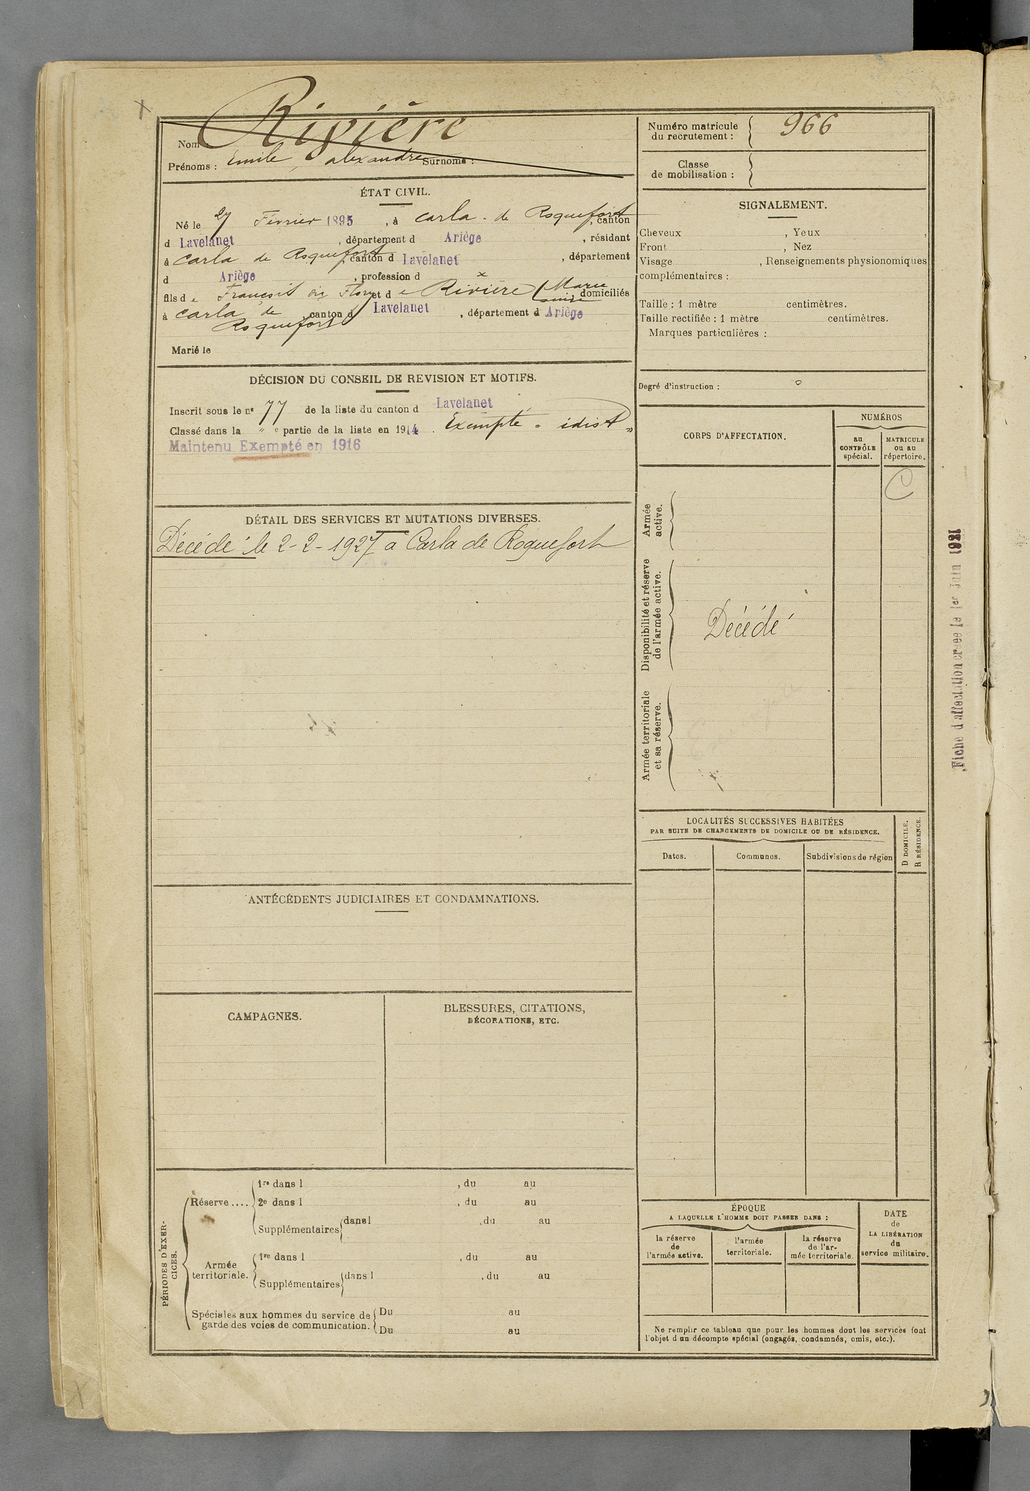 Nom Rivière
Prénoms : Emile, alexandre Surnoms :
ÉTAT CIVIL.
Né le 27 Février 1895, à Carla de Roquefort, canton
d Lavelanet, département d Ariège, résidant
à Carla de Roquefort, canton d Lavelanet, département
d Ariège, profession d x
fils de François et de Rivière (Marie domiciliés
à Carla de Roquefort canton d Lavelanet, département d Ariège
Marié le
DÉCISION DU CONSEIL DE REVISION ET MOTIFS.
Inscrit sous le n° 77 de la liste du canton d Lavelanet
Classé dans la " e partie de la liste en 1914. Exempté
Maintenu Exempté en 1916
DÉTAIL DES SERVICES ET MUTATIONS DIVERSES.
Décédé le 2-2-1927 a Carla de Roquefort
ANTÉCÉDENTS JUDICIAIRES ET CONDAMNATIONS.
CAMPAGNES.
BLESSURES, CITATIONS,
DÉCORATIONS, ETC.
PÉRIODES D'EXERCICES.
Réserve....
1re dans l , du au
2e dans l , du au
Supplémentaires dans l , du au
Armée
territoriale.
1re dans l , du au
Supplémentaires dans l , du au
Spéciales aux hommes du service de
garde des voies de communication.
Du au
Du au
Numéro matricule
du recrutement : 966
Classe
de mobilisation :
SIGNALEMENT.
Cheveux , Yeux ,
Front , Nez
Visage , Renseignements physionomiques
complémentaires :
Taille : 1 mètre centimètres.
Taille rectifiée : 1 mètre centimètres.
Marques particulières :
Degré d'instruction : 0
CORPS D'AFFECTATION.
NUMÉROS
au
CONTRÔLE
spécial.
MATRICULE
ou au
répertoire.
C
Armée
active.
Disponibilité et réserve
de l'armée active.
Décédé
Armée territoriale
et sa réserve.
LOCALITÉS SUCCESSIVES HABITÉES
PAR SUITE DE CHANGEMENTS DE DOMICILE OU DE RÉSIDENCE.
D DOMICILE.
R RÉSIDENCE.
Dates. Communes. Subdivisions de région
ÉPOQUE
A LAQUELLE L'HOMME DOIT PASSER DANS :
la réserve
de
l'armée active.
l'armée
territoriale.
la réserve
de l'ar-
mée territoriale.
DATE
de
LA LIBÉRATION
du
service militaire.
Ne remplir ce tableau que pour les hommes dont les services font
l'objet d'un décompte spécial (engagés, condamnés, omis, etc.).